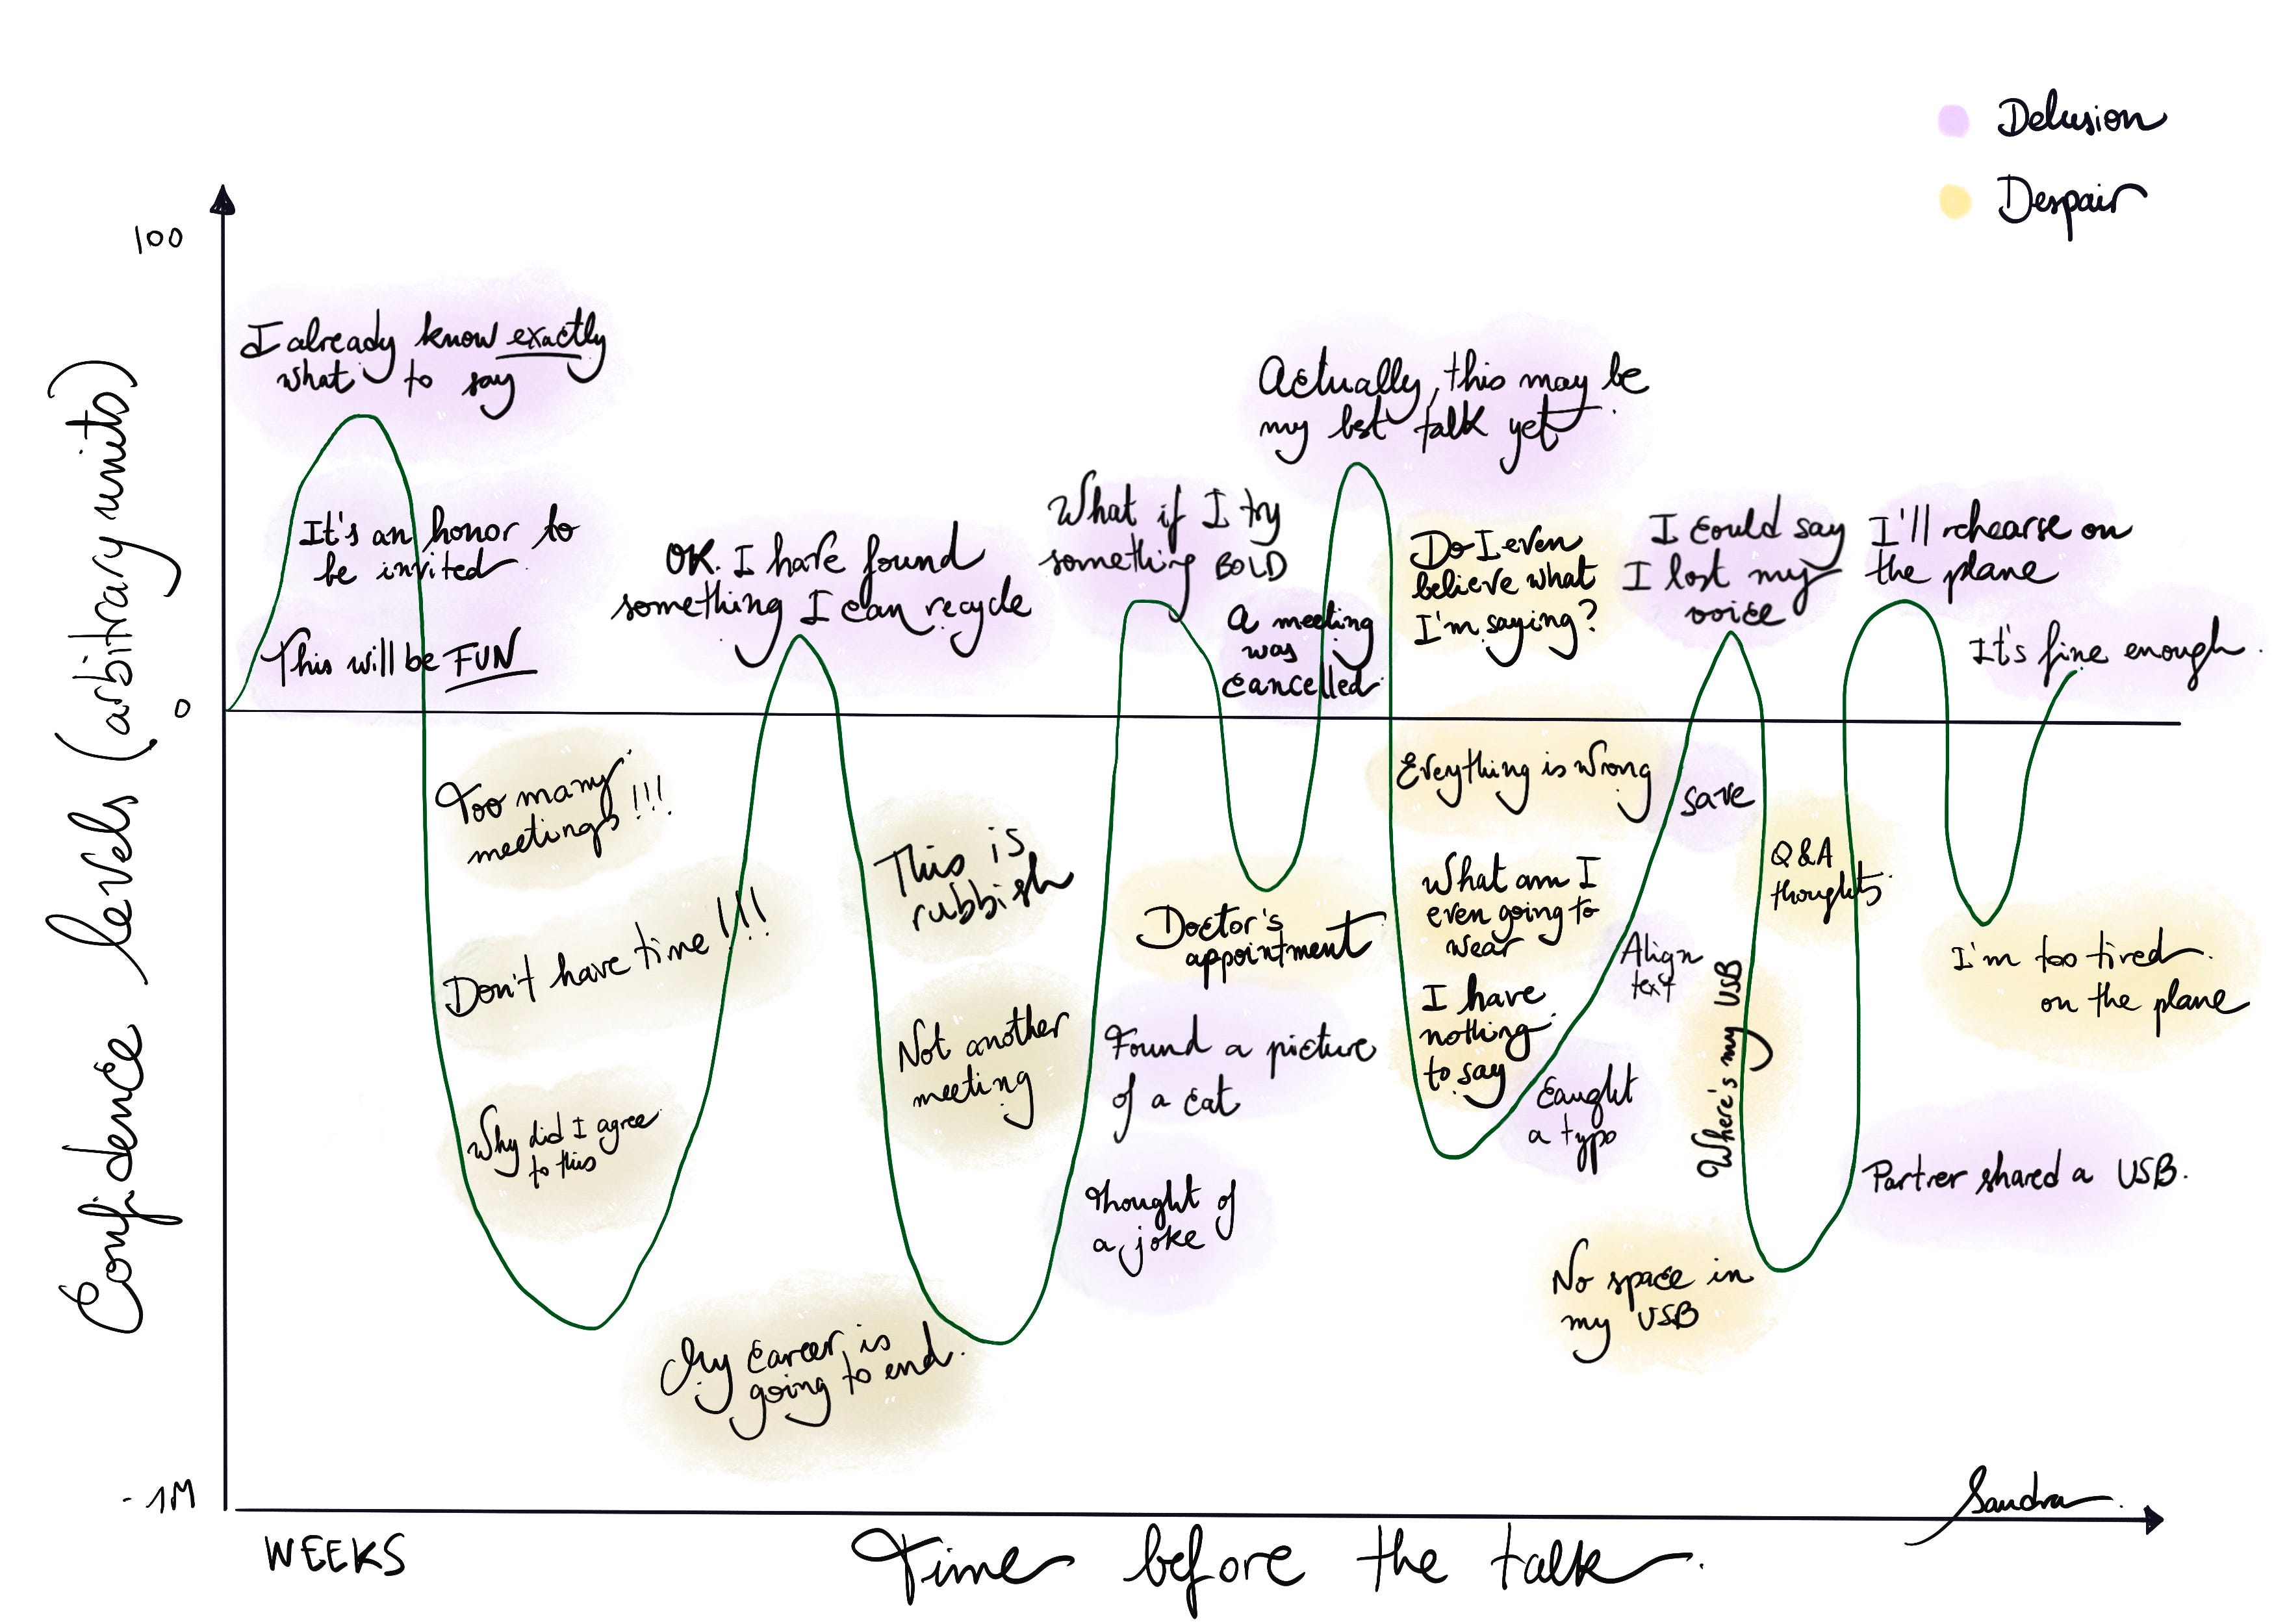 Delusion
Despair
Confidence levels (arbitrary units)
100
0
-1M
I already know exactly
what to say
It's an honor to
be invited
This will be FUN
Too many
meetings !!!
Don't have time !!!
Why did I agree
to this
OK. I have found
something I can recycle
My career is
going to end.
This is
rubbish
Not another
meeting
Thought of
a joke
Found a picture
of a cat
What if I try
something BOLD
Doctor's
appointment
A meeting
was
cancelled
Actually, this may be
my best talk yet.
Do I even
believe what
I'm saying?
Everything is wrong
What am I
even going to
wear
I have
nothing
to say
Caught
a typo
Align
text
save
I could say
I lost my
voice
Where's my USB
No space in
my USB
Q&A
thoughts
Partner shared a USB.
I'll rehearse on
the plane
I'm too tired
on the plane
It's fine enough.
Sandra
WEEKS
Time before the talk.